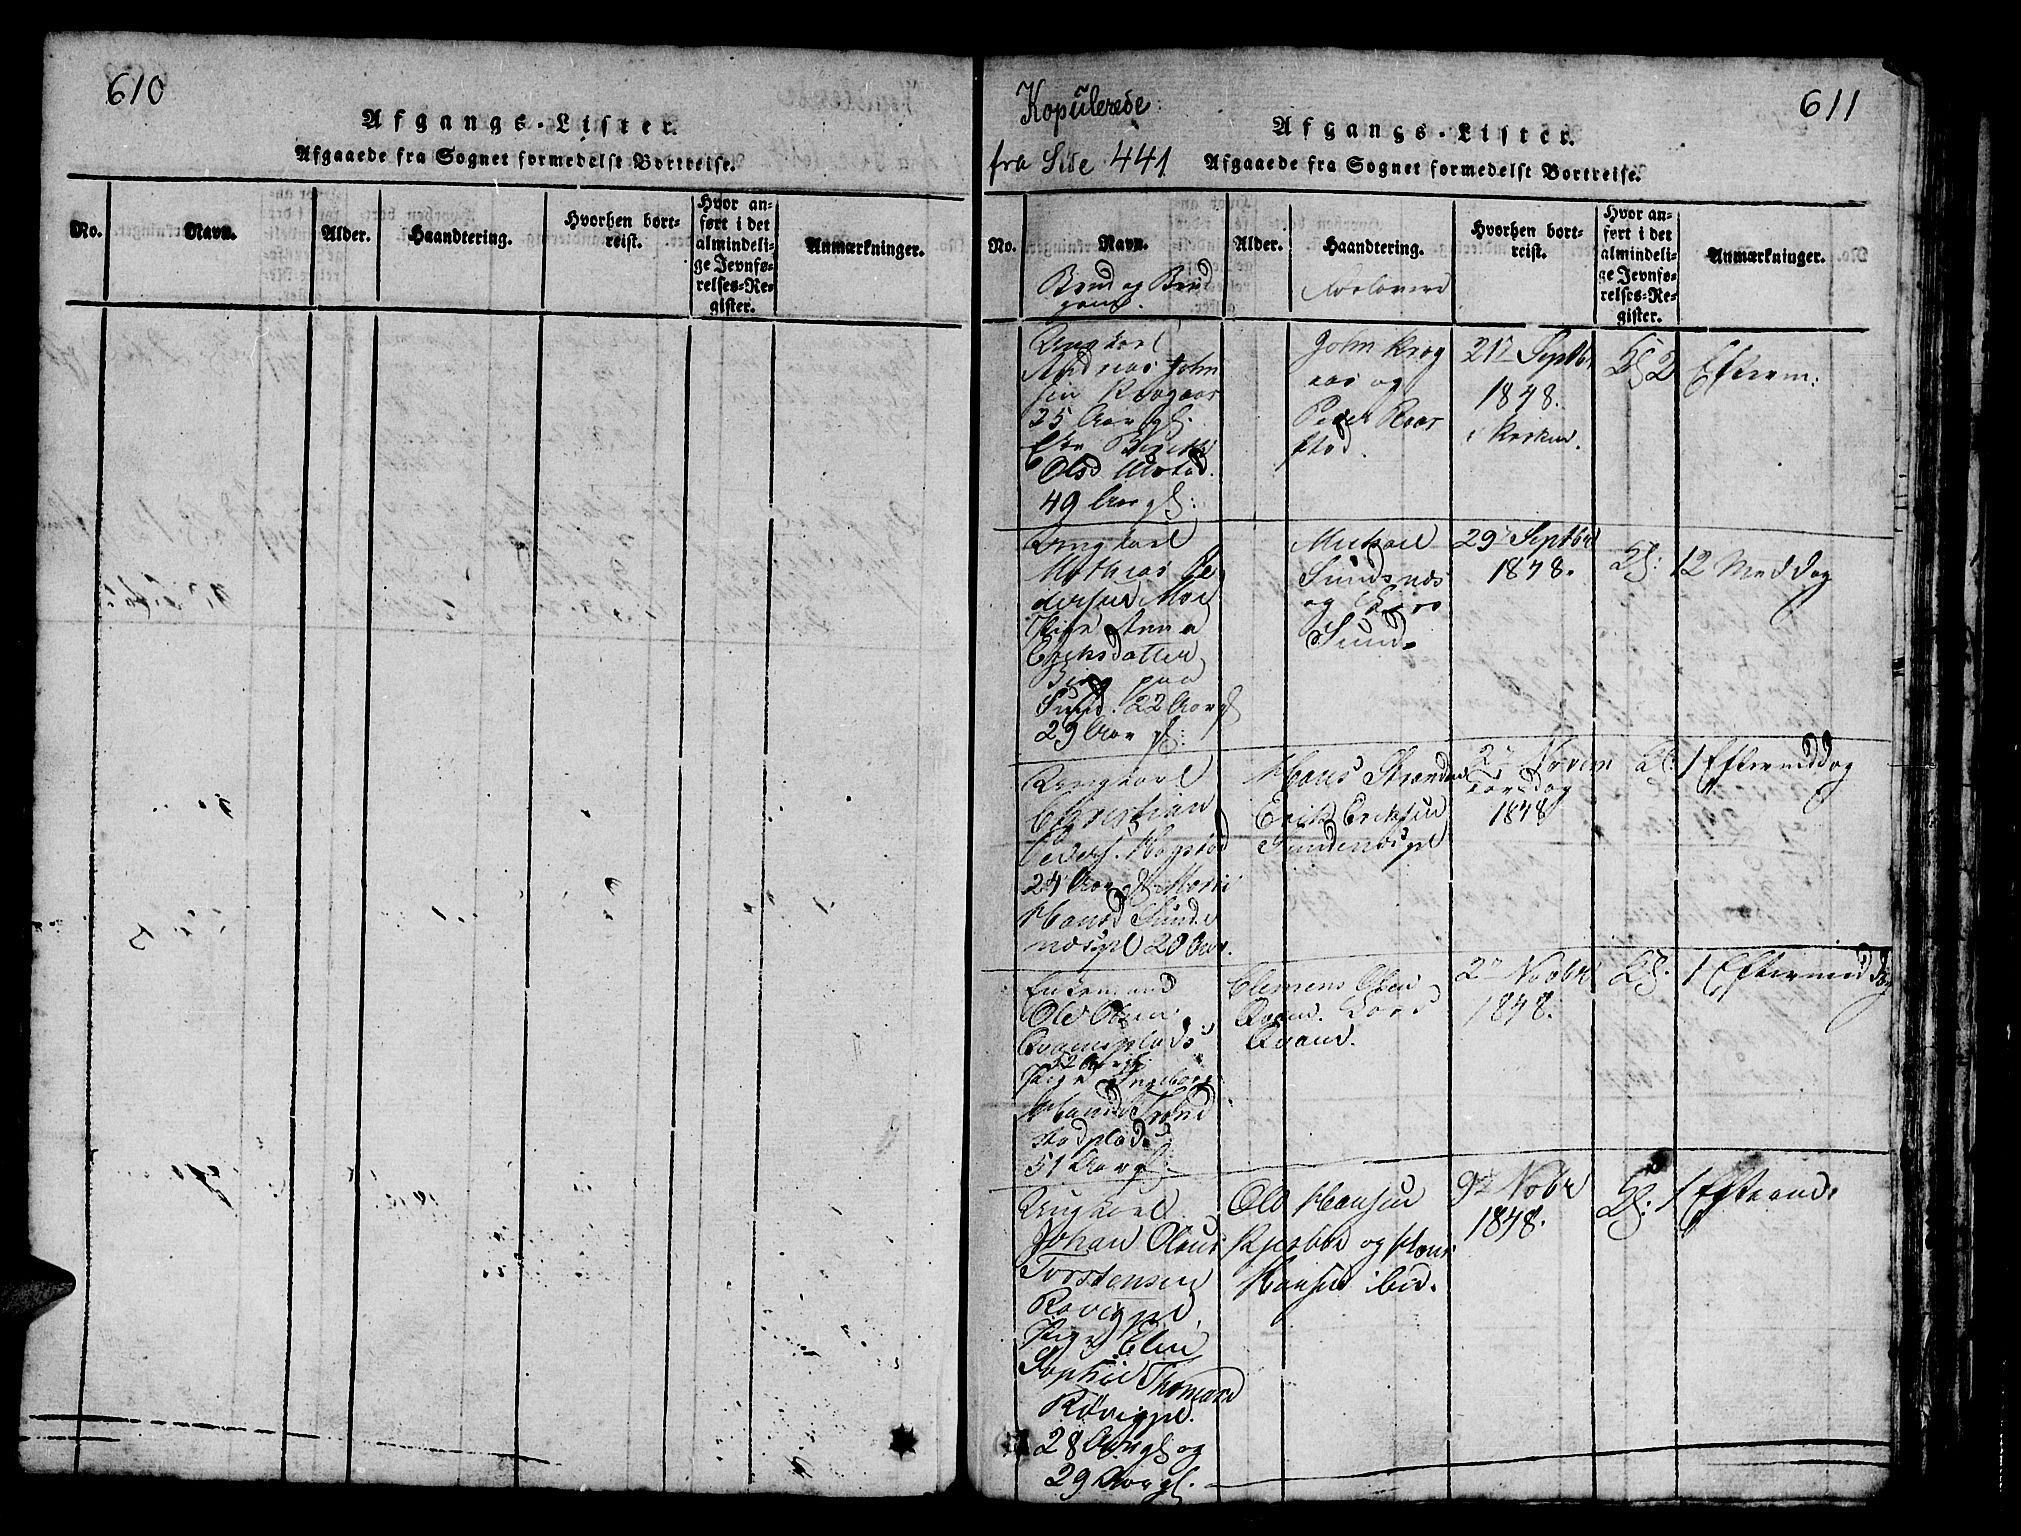 610
Afgangs-Lister.
Afgaaede fra Sognet formedelst Bortreise.
No.
Navn.
Alder.
Haandtering.
Hvorhen bort-
reist.
Hvor an-
ført i det
almindeli-
ge Jevnfø-
relses-Re-
gister.
Anmærkninger.
Kopulerede
fra Side 441
611
Afgangs-Lister.
Afgaaede fra Sognet formedelst Bortreise.
No.
Navn.
Brud og Brud
gom.
Alder.
Haandtering.
Forlovere
Hvorhen bort-
reist.
Hvor an-
ført i det
almindeli-
ge Jevnfø-
relses-Re-
gister.
Anmærkninger.
Ungkarl
Andreas John
sen
25 Aar gl.
Olsd
49 Aar gl:
John
og
Peder
stad.
21 Septbr
1848.
i Kirken.
Kl 2
Efterm:
Ungkarl
Mathias Pe
dersen Moe
Pige Anna
Eriksdatter
paa
Sund. 22 Aar gl
29 Aar gl:
Michael
Sundsnæs
og
Sund.
29 Septbr
1848.
Kl: 12 Meddag
Ungkarl
Christian
Peders.
24 Aar gl Maria
Hansd Sunde
næspl 20 Aar.
Hans Stranden
Erik Eriksen
Sundenæspl
2 Novem
Torsdag
1848
Kl: 1 Eftermiddag
Enkemand
Ole Olsen
Qvamsplads
52 Aar gl.
Pige Ingeborg
Hansd
stadplads
51 Aar gl:
Clemens Olsen
Qvam. Lars
Qvam.
2 Novbr
1848.
Kl. 1 Eftermiddag
Ungkarl
Johan Olaus
Torstensen
Røvigpl
Pige Elen
Sophie Thomasd
Røvigpl.
28 Aar gl og
29 Aar gl.
Ole Hansen
og Hans
Hansen ibid.
9 Novbr
1848.
Kl: 1 Efter